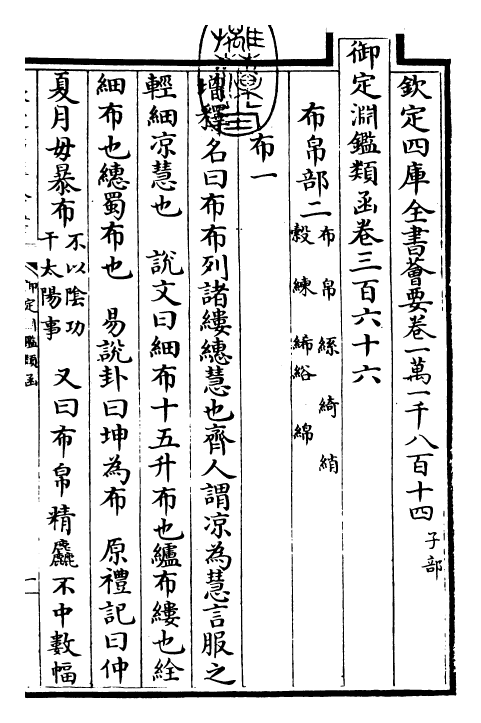 欽定四庫全書薈要卷一萬一千八百十四 子部
御定淵鑑類函卷三百六十六
布帛部二 布 帛 絲 綺 綃
縠 練 絺綌 綿
布一
增釋名曰布布列諸縷繐慧也齊人謂凉為慧言服之
輕細凉慧也 說文曰細布十五升布也纑布縷也絟
細布也繐蜀布也 易說卦曰坤為布 原禮記曰仲
夏月毋暴布 不以陰功
干太陽事 又曰布帛精麤不中數幅